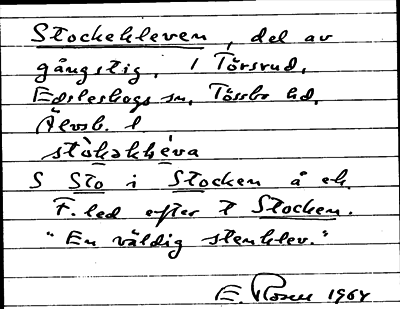 Stockekleven, del av
gångstig, i Törsrud,
Edsleskogs sn, Tössbo hd,
Älvsb. l
stòkəkléva
S Sto i Stocken å ek.
F. led efter t Stocken.
"En väldig stenklev."
E. Rosen 1964